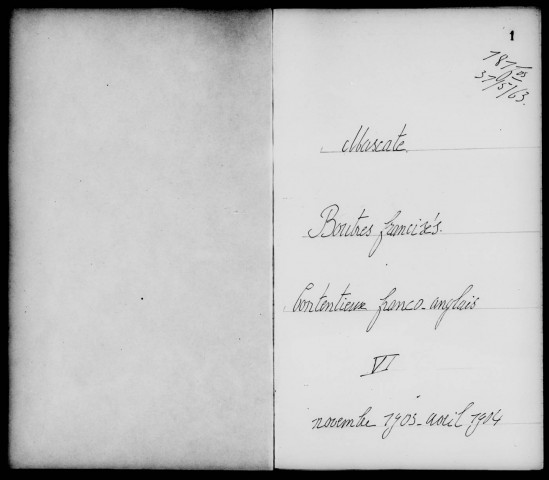 1
Mascate
Boutres francisés.
Contentieux franco-anglais
VI
novembre 1903 - avril 1904